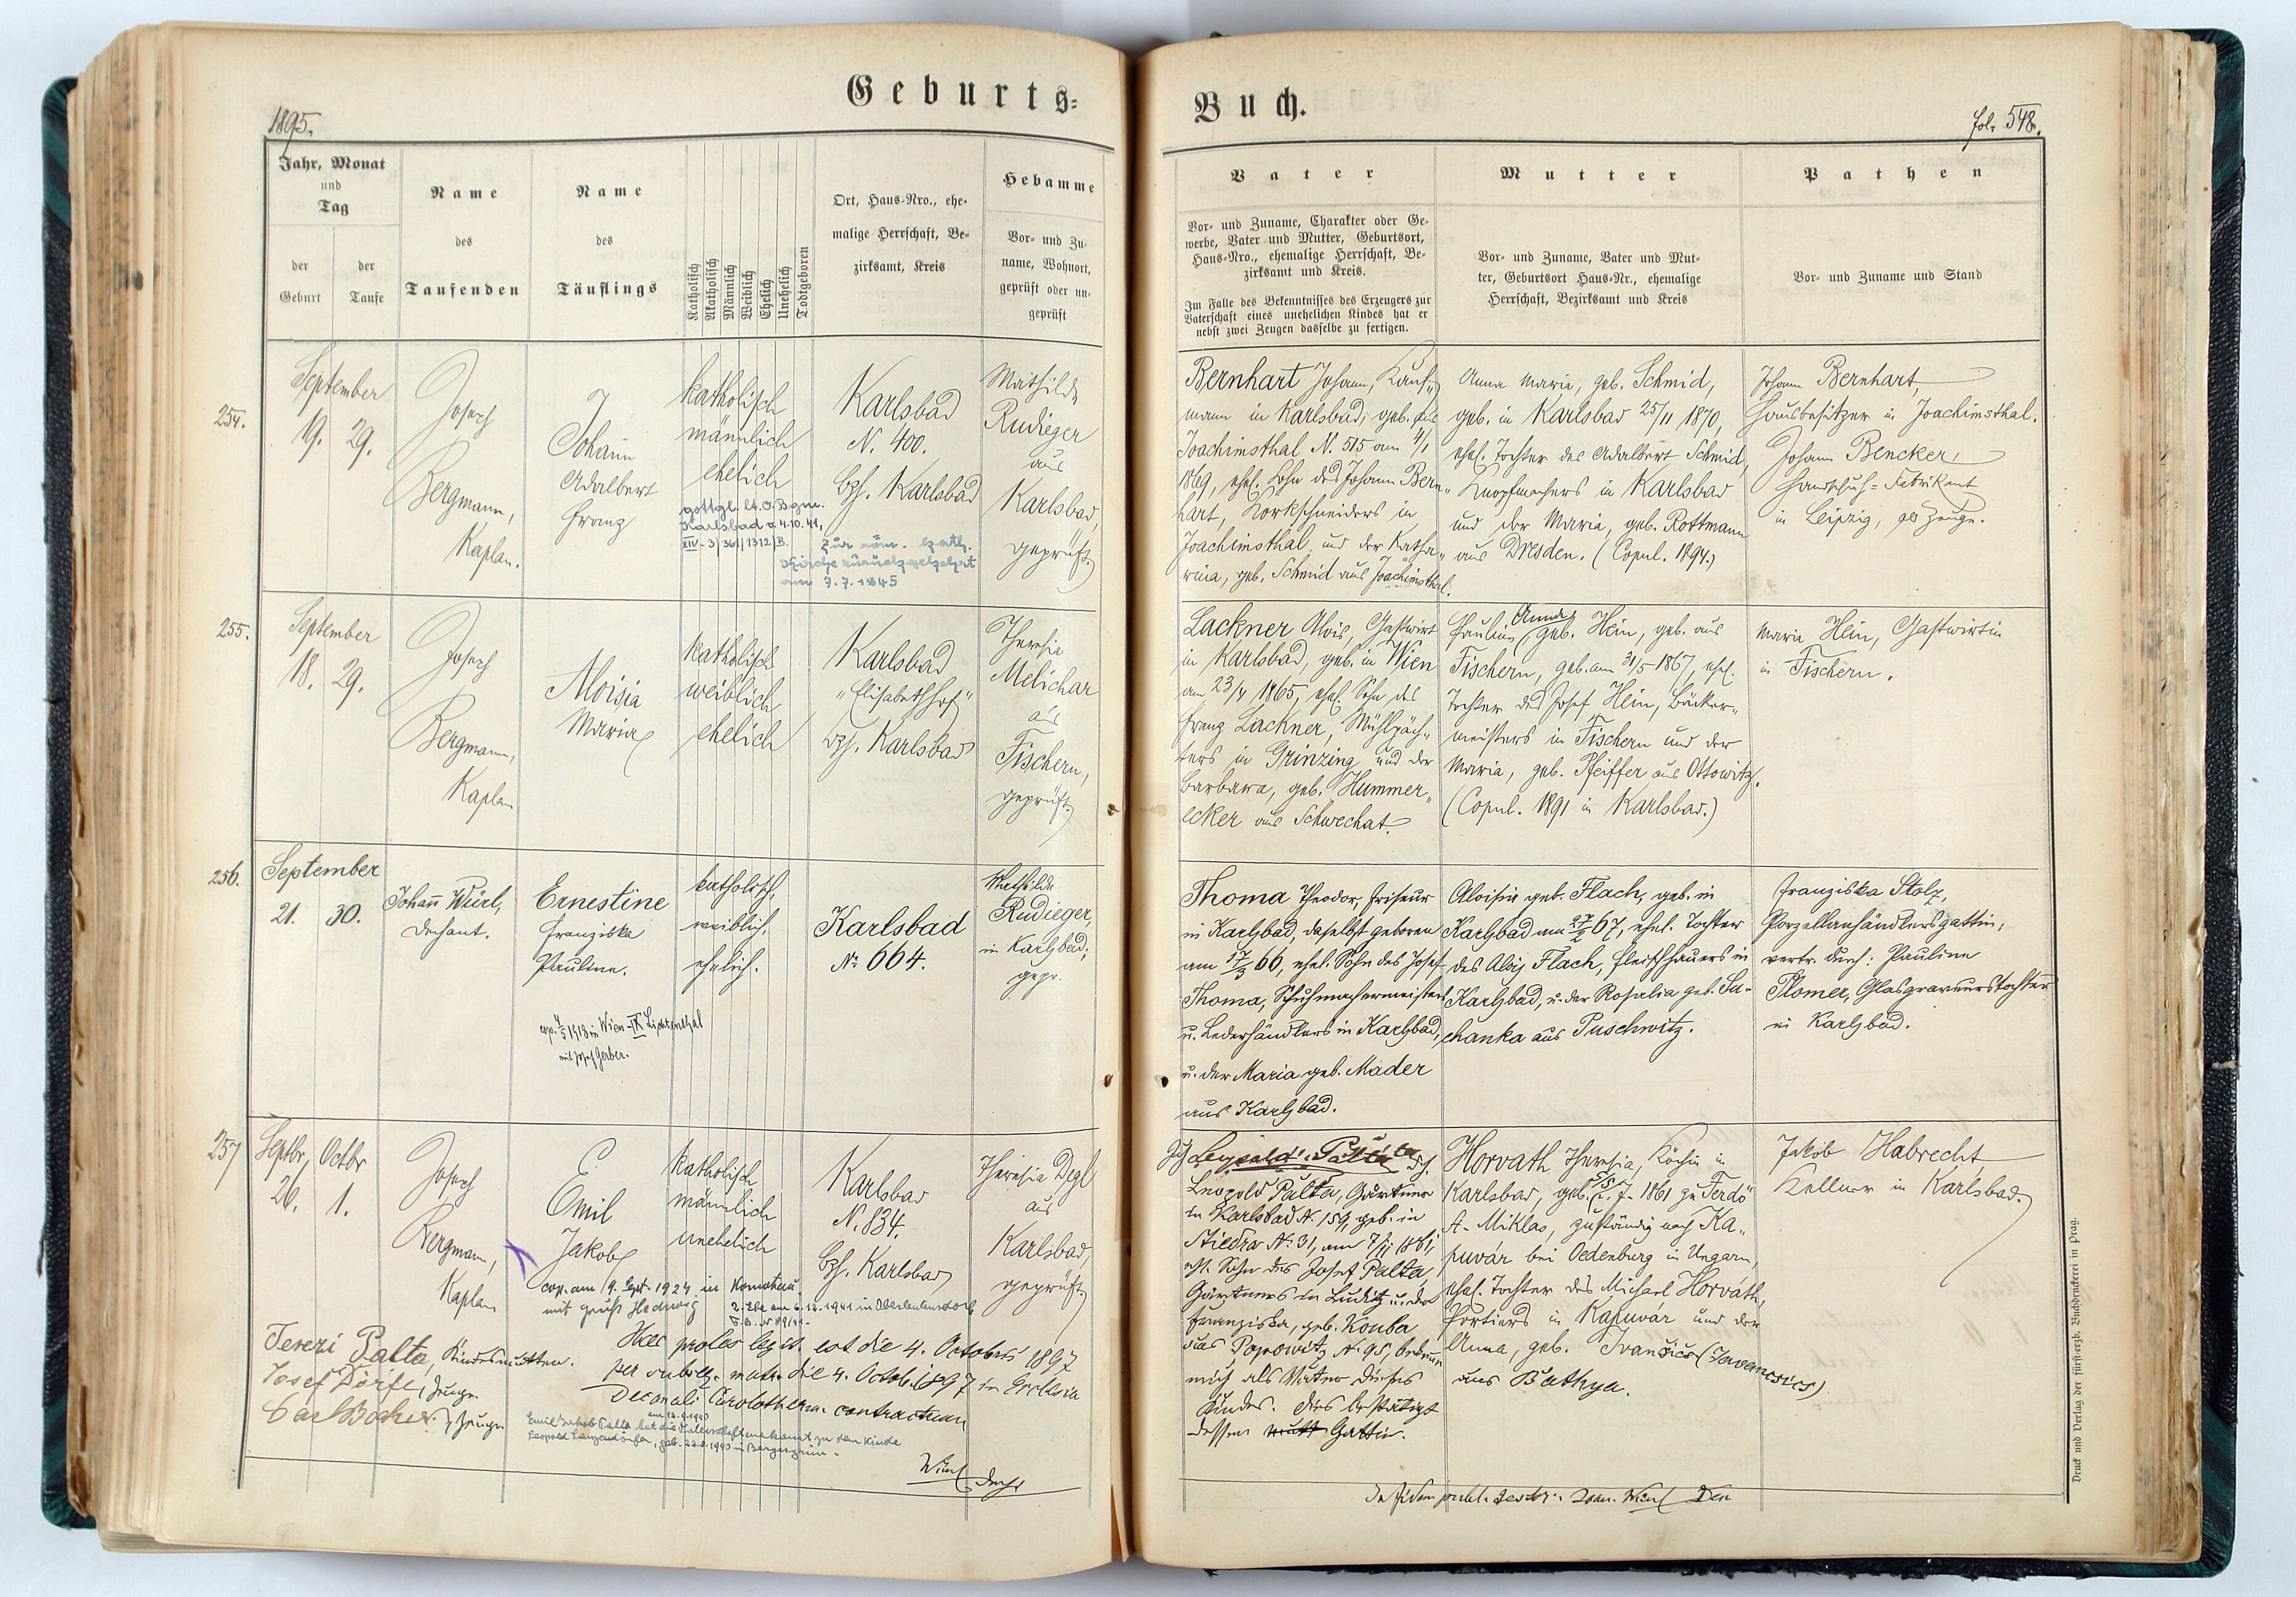 Geburts-
Buch.
1895.
fol. 548.
Jahr, Monat
und
Tag
der
Geburt
der
Taufe
Name
des
Taufenden
Name
des
Täuflings
Katholisch
Akatholisch
Männlich
Weiblich
Ehelich
Unehelich
Todtgeboren
Ort, Haus-Nro., ehe-
malige Herrschaft, Be-
zirksamt, Kreis
Hebamme
Vor- und Zu-
name, Wohnort,
geprüft oder un-
geprüft
Vater
Vor- und Zuname, Charakter oder Ge-
werbe, Vater und Mutter, Geburtsort,
Haus-Nro., ehemalige Herrschaft, Be-
zirksamt und Kreis.
Im Falle des Bekenntnisses des Erzeugers zur
Vaterschaft eines unehelichen Kindes hat er
nebst zwei Zeugen dasselbe zu fertigen.
Mutter
Vor- und Zuname, Vater und Mut-
ter, Geburtsort Haus-Nr., ehemalige
Herrschaft, Bezirksamt und Kreis
Pathen
Vor- und Zuname und Stand
254.
September
19. 29.
Josef
Bergmann,
Kaplan.
Johann
Adalbert
Franz
katholisch
männlich
ehelich
gottgl. lt. O. Bgm.
Karlsbad v. 4.10.41,
XIV-3/361/1312/B.
zur röm. kath.
Kirche zurückgekehrt
am 7.7.1945
Karlsbad
N. 400.
Bzh. Karlsbad
Mathilde
Rudieger
aus
Karlsbad,
geprüft.
Bernhart Johann, Kauf-
mann in Karlsbad, geb. zu
Joachimsthal N. 515 am 4/1
1869, ehel. Sohn des Johann Bern-
hart, Korkschneiders in
Joachimsthal und der Katha-
rina, geb. Schmid aus Joachimsthal.
Anna Maria, geb. Schmid,
geb. in Karlsbad 25/11 1870,
ehel. Tochter des Adalbert Schmid,
Knopfmachers in Karlsbad
und der Maria, geb. Rottmann
aus Dresden. (Copul. 1894.)
Johann Bernhart,
Hausbesitzer in Joachimsthal.
Johann Bencker,
Handschuh-Fabrikant
in Leipzig, als Zeuge.
255.
September
18. 29.
Josef
Bergmann,
Kaplan
Aloisia
Maria
katholisch
weiblich
ehelich
Karlsbad
"Elisabethhof"
Bzh. Karlsbad
Theresia
Melichar
aus
Fischern,
geprüft.
Lackner Alois, Gastwirt
in Karlsbad, geb. in Wien
am 23/4 1865, ehel. Sohn des
Franz Lackner, Mühlpäch-
ters in Grinzing und der
Barbara, geb. Hummer-
ecker aus Schwechat.
Pauline Anna geb. Hein, geb. aus
Fischern, geb. am 31/5 1867, ehel.
Tochter des Josef Hein, Bäcker-
meisters in Fischern und der
Maria, geb. Pfeiffer aus Ottowitz.
(Copul. 1891 in Karlsbad.)
Maria Hein, Gastwirtin
in Fischern.
256.
September
21. 30.
Johann Würl,
Dechant.
Ernestine
Franziska
Pauline.
cop. 4/5 1918 in Wien-IX Lichtenthal
mit Josef Gerber.
katholisch.
weiblich.
ehelich.
Karlsbad
No 664.
Mathilde
Rudieger,
in Karlsbad;
gepr.
Thoma Theodor, Friseur
in Karlsbad, daselbst geboren
am 17/3 66, ehel. Sohn des Josef
Thoma, Schuhmachermeisters
u. Lederhändlers in Karlsbad,
u. der Maria geb. Mader
aus Karlsbad.
Aloisia geb. Flach, geb. in
Karlsbad am 27/2 67, ehel. Tochter
des Alois Flach, Fleischhauers in
Karlsbad, u. der Rosalia geb. Su-
chanka aus Puschwitz.
Franziska Stolz,
Porzellanhändlersgattin,
vertr. durch: Pauline
Plomer, Glasgraveurstochter
in Karlsbad.
257
Septbr. Octbr
26. 1.
Josef
Bergmann,
Kaplan
Emil
Jakob
cop. am 19. Sept. 1924 in Komotau
mit Hedwig
2. Ehe am 6.12.1941 in
katholisch
männlich
unehelich
Karlsbad
N. 834.
Bzh. Karlsbad
Theresia Degl
aus
Karlsbad,
geprüft.
Ich Leopold Palta
Leopold Palta, Gärtner
in Karlsbad N. 159, geb. in
Stiedra N. 31, am 7/11 1861,
ehl. Sohn des Josef Palta,
Gärtners in Luditz u. der
Franziska, geb. Kouba
aus Popowitz N. 95, bekenne
mich als Vater dieses
Kindes. Dies bestätigt
dessen Gattin.
Horvath Theresia, Köchin in
Karlsbad, geb. 7. 1861 zu Ferdö
St. Miklos, zuständig nach Ka-
puvár bei Oedenburg in Ungarn,
ehel. Tochter des Michael Horváth,
Portiers in Kapuvár und der
Anna, geb. Ivansics (Ivanesics)
aus Bathya.
Jakob Habrecht
Kellner in Karlsbad.
Terezi Palta, Kindesmutter.
Josef Dörfl, Zeuge
Carl Bocher, Zeuge
Haec proles legit. est die 4. Octobris 1897
per subseq. matr. die 4. Octob. 1897 in Ecclesia
Decanali Carolotherm. contractum
am 12.9.1940
Emil Jakob Palta hat die Vaterschaft anerkannt zu dem Kinde
Leopold Langendörfer, geb. 22.8.1940 in Bergesgrün.
Würl Decht
In fidem publ. Joan. Würl Dec
Druck und Verlag der fürst-erzb. Buchdruckerei in Prag.